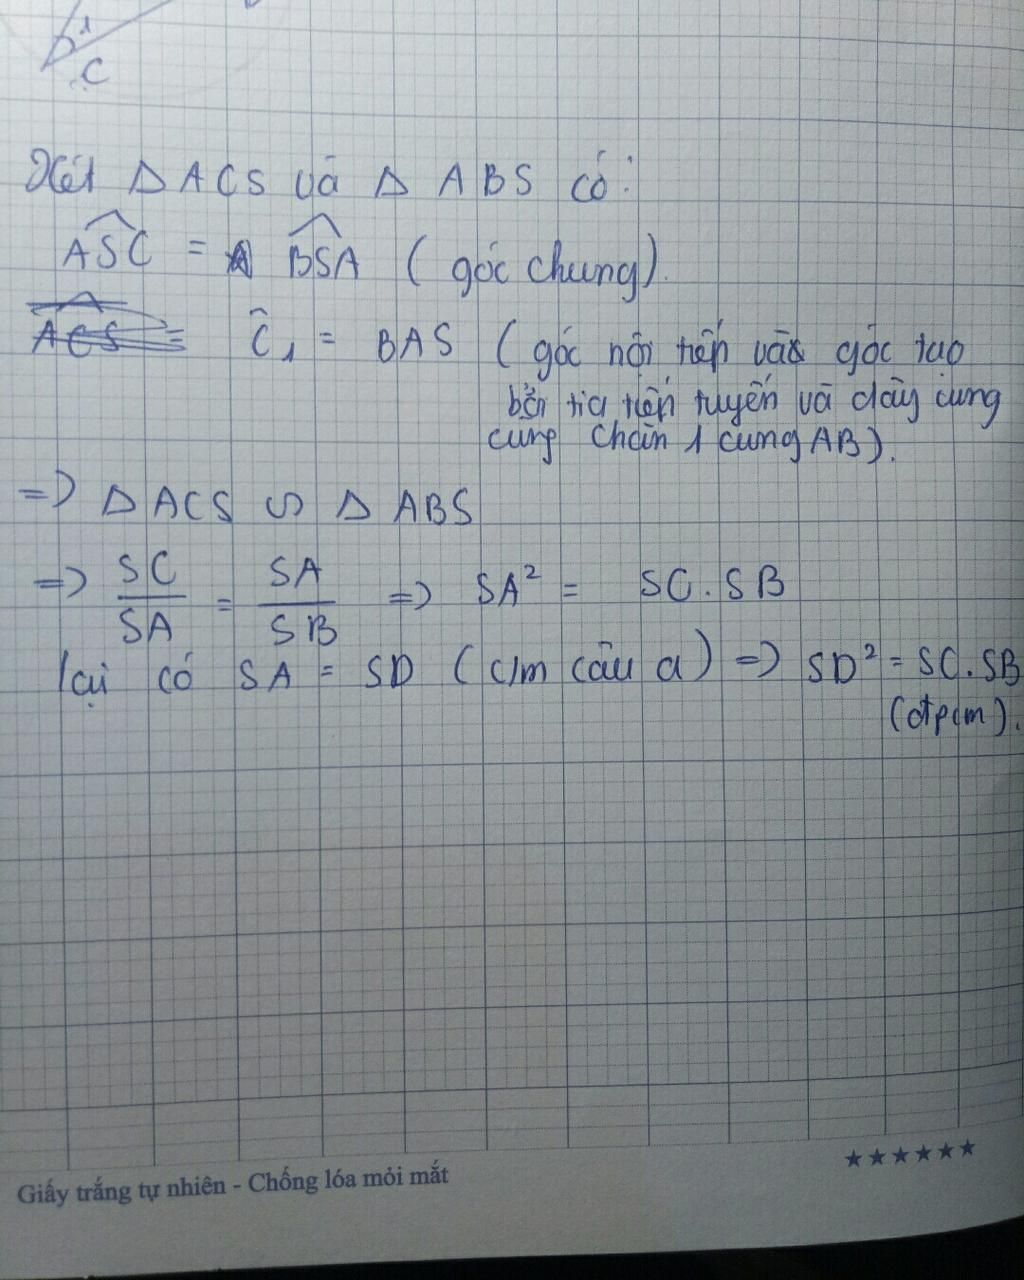 1
C
Xét Δ ACS và Δ ABS có:
ASC = BSA (góc chung).
ACS =
Ĉ₁ = BAS (góc nội tiếp và góc tạo
bởi tia tiếp tuyến và dây cung
cùng chắn 1 cung AB).
=> Δ ACS ∽ Δ ABS
=> SC/SA = SA/SB => SA² = SC.SB
lại có SA = SD (c/m câu a) => SD² = SC.SB
(đtpcm).
Giấy trắng tự nhiên - Chống lóa mỏi mắt
★★★★★★